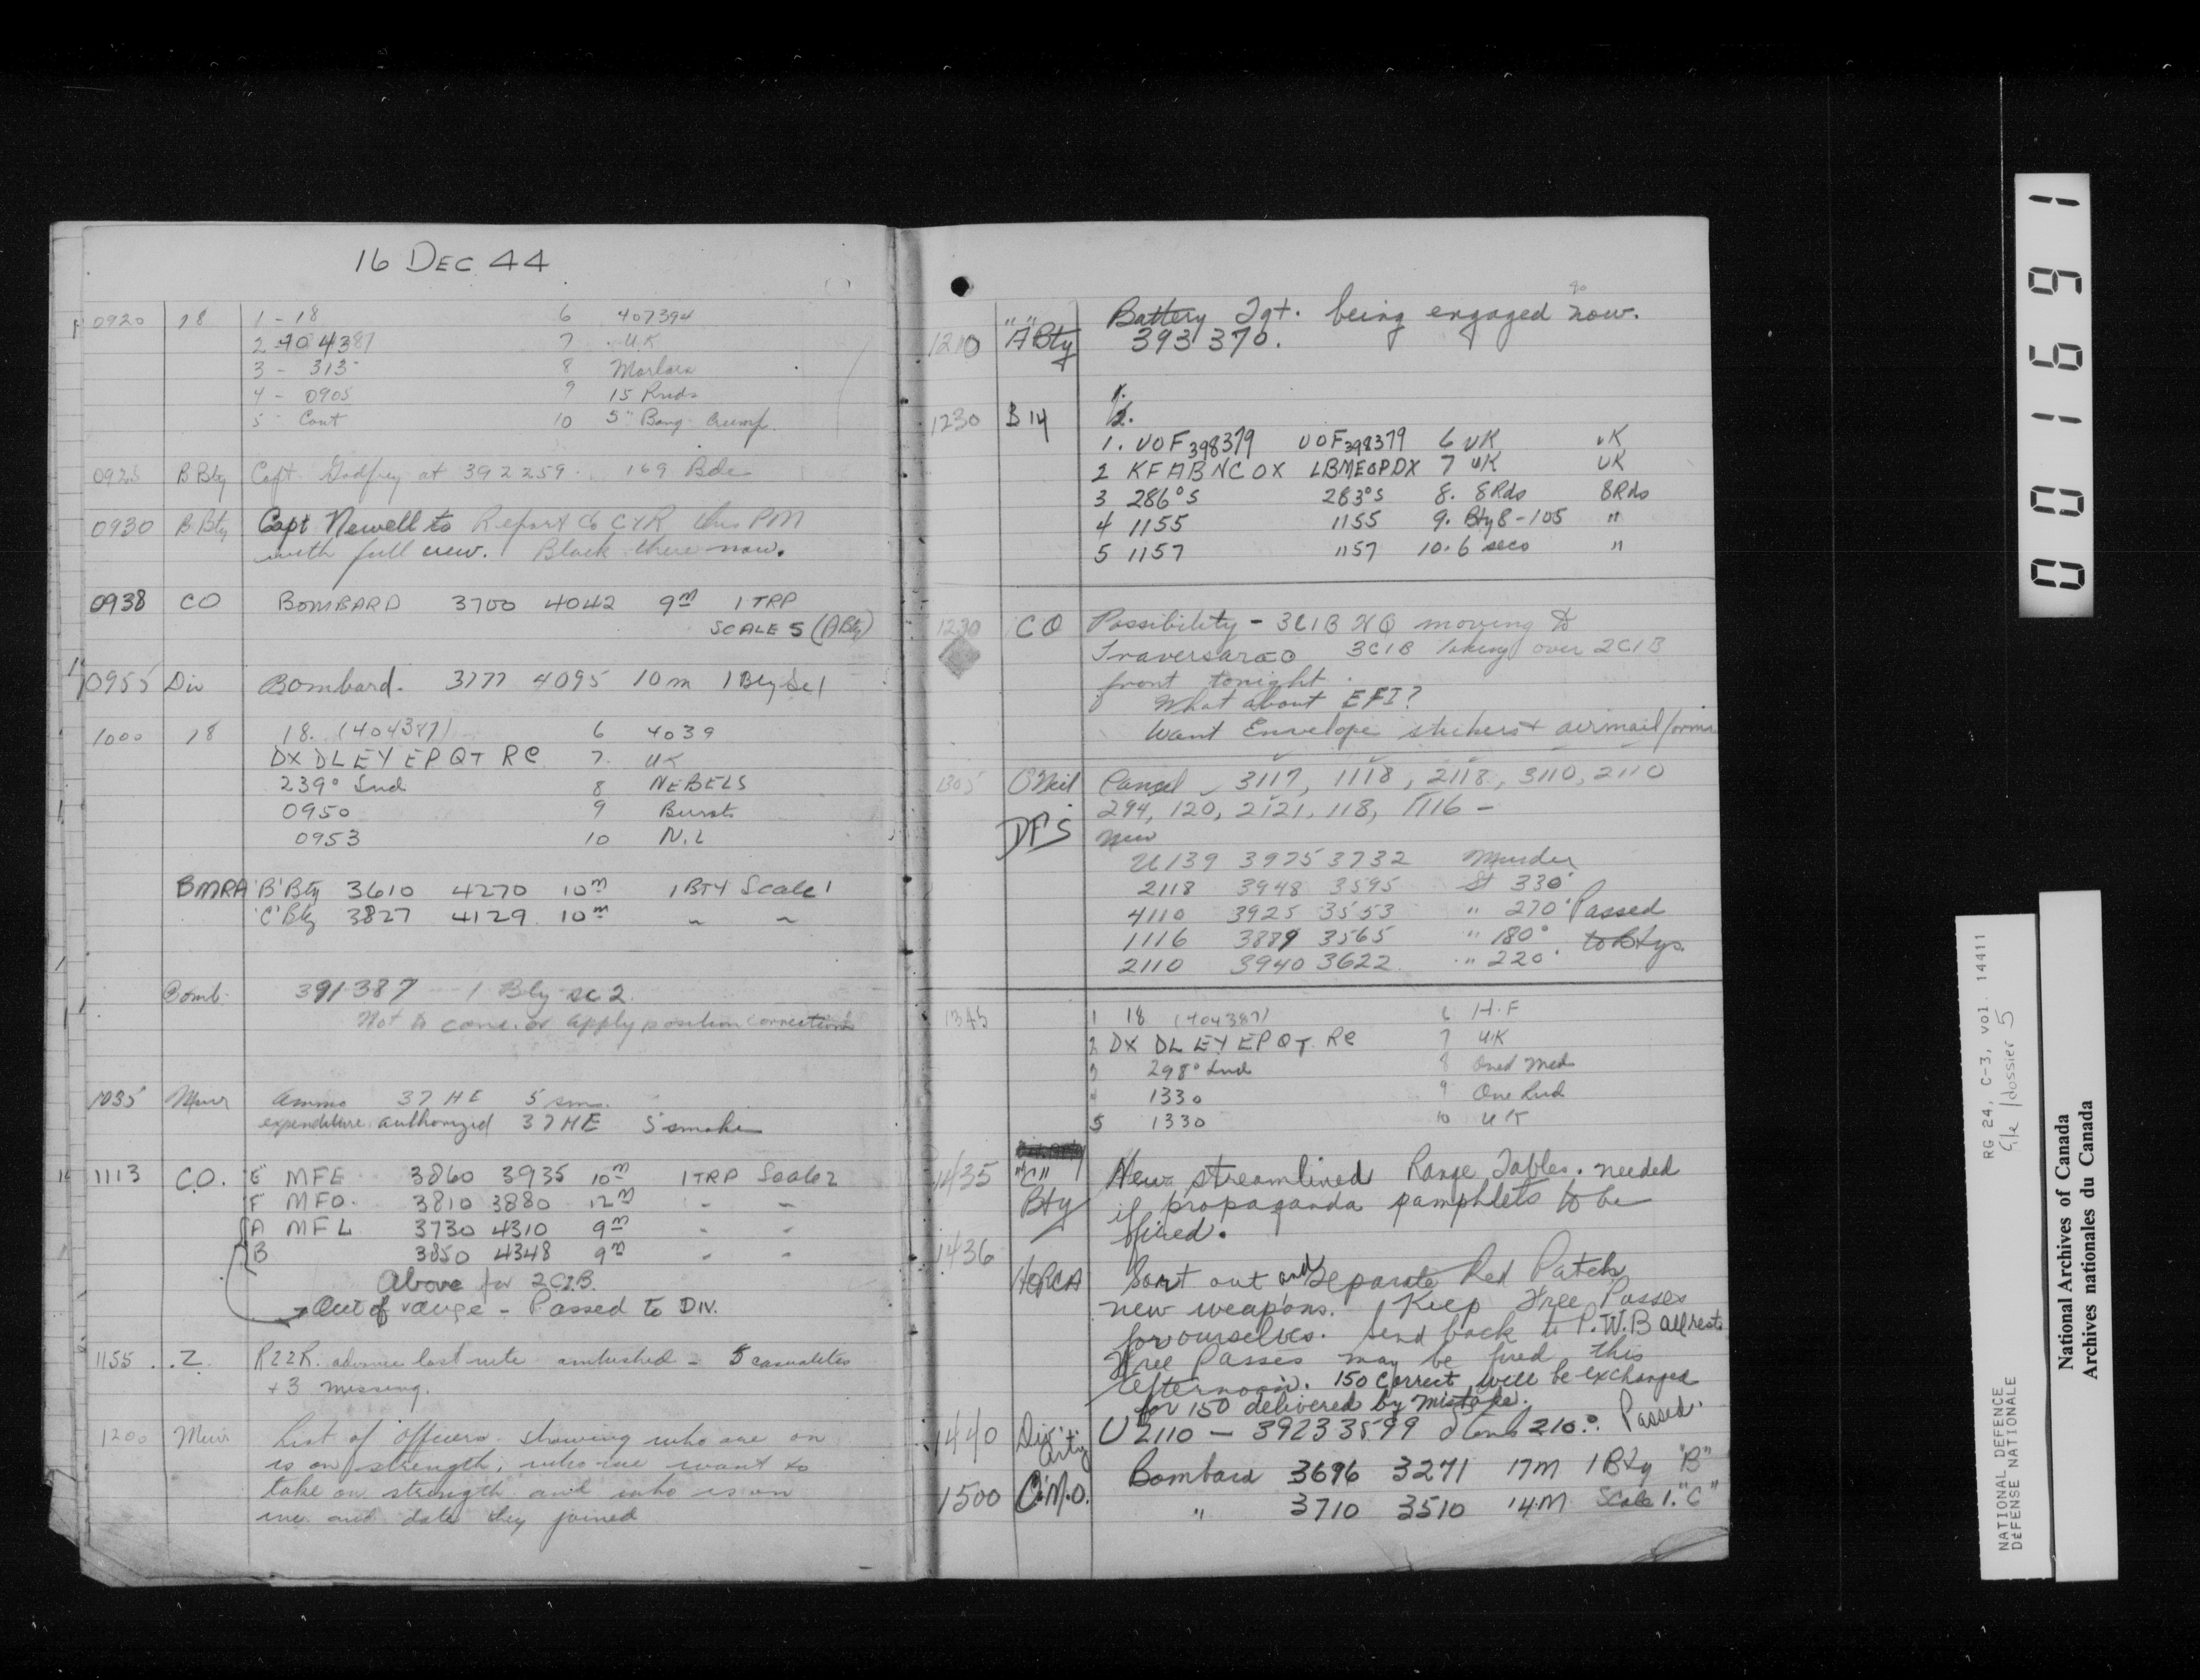 16 DEC 44
0920 18 1 - 18 6 407394
2 404387 7 U.K
3 - 313 8 Mortars
4 - 0905 9 15 Rnds
5 - Cont 10 5" Bang Crump
0925 B Bty Capt Godfrey at 392259. 169 Bde
0930 B Bty Capt Newell to Report to CYR this PM
with full crew. Black there now.
0938 CO BOMBARD 3700 4042 9m 1 TRP
SCALE 5 (A Bty)
0955 Div Bombard. 3777 4095 10 m 1 Bty Sc 1
1000 18 18. (404387) 6 4039
DX DL EY EP QT RC 7. UK
239° Snd 8 NEBELS
0950 9 Bursts
0953 10 N.L
BMRA 'B' Bty 3610 4270 10m 1 BTY Scale 1
'C' Bty 3827 4129 10m " "
Bomb. 391387 - 1 Bty sc 2.
Not to conc. or apply position corrections
1035 Muir Ammo 37 HE 5 sm.
expenditure authorized 37 HE 5 smoke
1113 C.O. E MFE 3860 3935 10m 1 TRP Scale 2
F MFO. 3810 3880 12m - -
A MFL 3730 4310 9m - -
B 3850 4348 9m - -
Above for 2CIB.
Out of range - Passed to DIV.
1155 Z R22R. advance last nite ambushed - 5 casualties
+ 3 missing.
1200 Muir List of Officers. showing who are on
is on strength, who we want to
take on strength and who is on
and date they joined
1210 "A" Bty Battery Tgt. being engaged now.
393370.
1.
2.
1230 B 14
1. UOF 398379 UOF 398379 6 UK UK
2 KFABNCOX LBMEOPDX 7 UK UK
3 286°S 283°S 8. 8Rds 8Rds
4 1155 1155 9. Bty 8-105 "
5 1157 1157 10. 6 secs "
1230 CO Possibility - 3CIB HQ moving to
Traversara 3CIB taking over 2CIB
front tonight.
What about EFI?
Want Envelope stickers + airmail forms
1305 O'Neil Cancel 3117, 1118, 2118, 3110, 2110
294, 120, 2121, 118, 1116 -
DFS New
U139 3975 3732 Murder
2118 3948 3595 St 330°
4110 3925 3553 " 270° Passed
1116 3889 3565 " 180° to Btys.
2110 3940 3622 " 220°
1345 1 18 (404387) 6 H.F
2 DX DL EY EP QT RC 7 U.K
3 298° Snd 8 One Med
4 1330 9 One Rnd
5 1330 10 UK
1435 "C" Bty New streamlined Range Tables. needed
if propaganda pamphlets to be
fired.
1436
HQRCA Sort out and separate Red Patch
new weapons. Keep Free Passes
for ourselves. Send back to P.W.B all rest
Free Passes may be fired this
afternoon. 150 correct will be exchanged
for 150 delivered by mistake.
1440 Div Arty U 2110 - 3923 3599 210°. Passed.
1500 C.M.O. Bombard 3696 3271 17M 1 Bty "B"
" 3710 3510 14M Scale 1. "C"
001691
RG 24, C-3, vol. 14411
file/dossier 5
NATIONAL DEFENCE
DÉFENSE NATIONALE
National Archives of Canada
Archives nationales du Canada